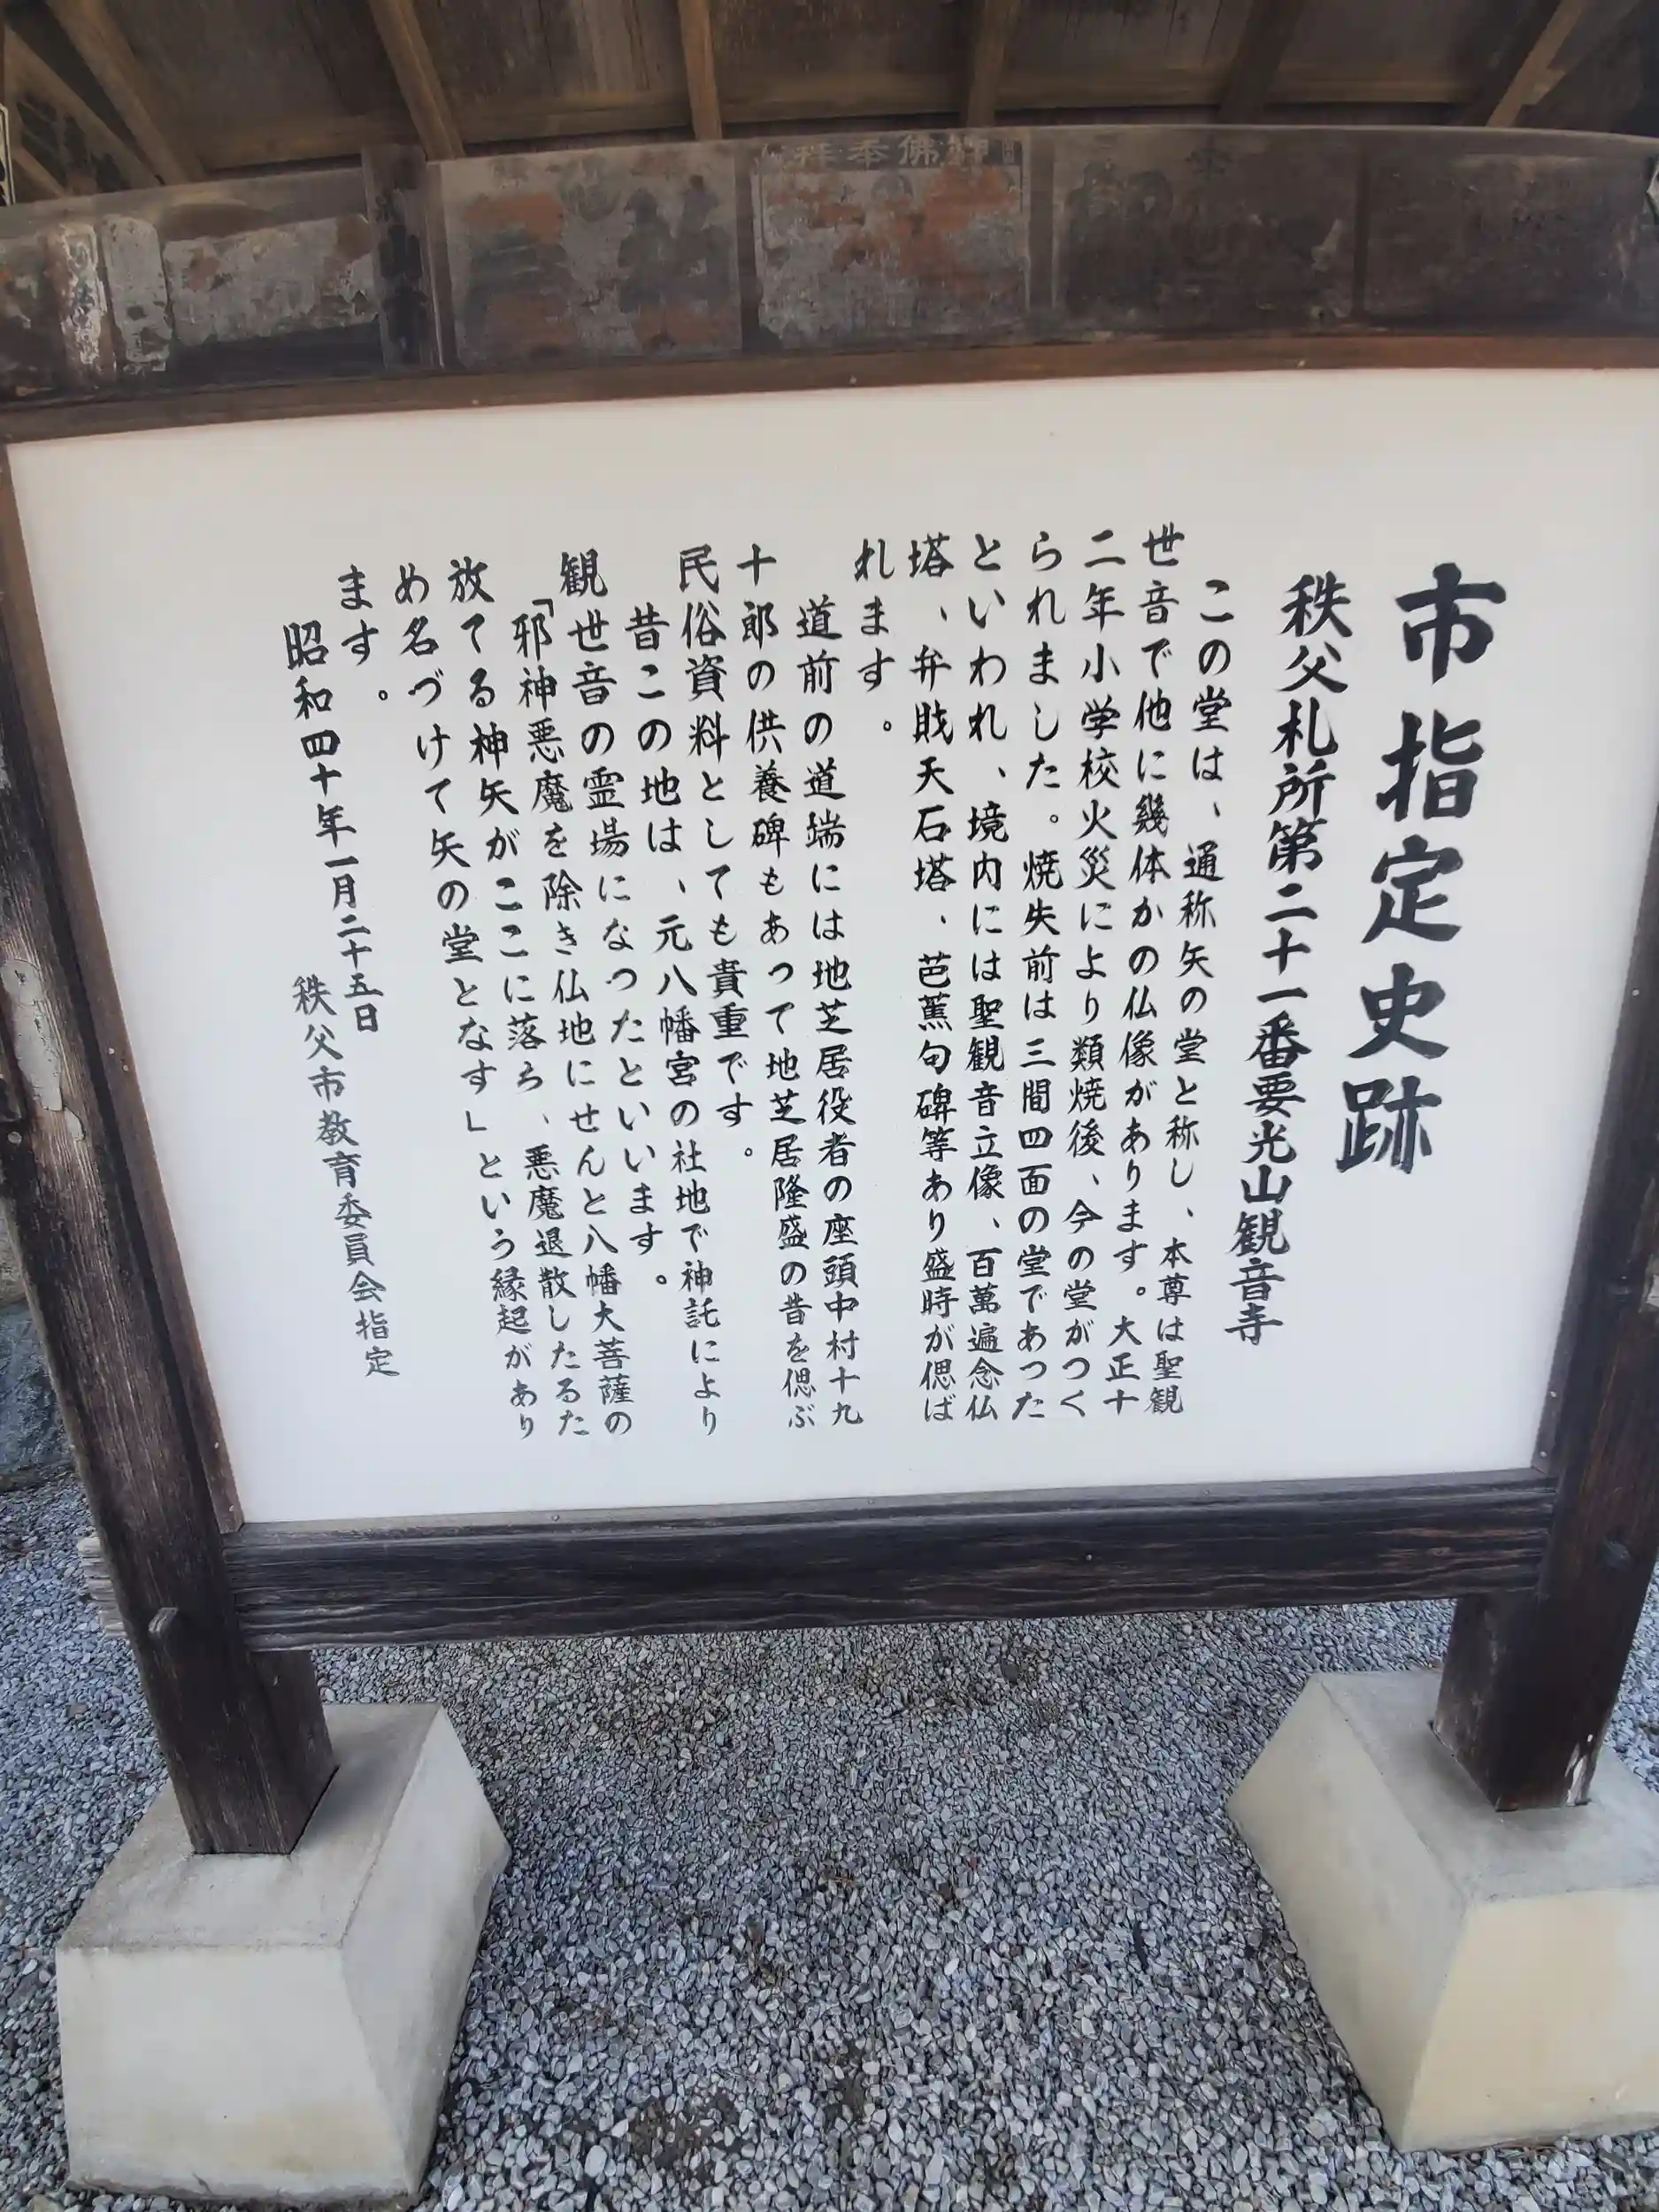 市指定史跡
秩父札所第二十一番要光山観音寺
この堂は、通称矢の堂と称し、本尊は聖観
世音で他に幾体かの仏像があります。大正十
二年小学校火災により類焼後、今の堂がつく
られました。焼失前は三間四面の堂であつた
といわれ、境内には聖観音立像、百萬遍念仏
塔、弁財天石塔、芭蕉句碑等あり盛時が偲ば
れます。
道前の道端には地芝居役者の座頭中村十九
十郎の供養碑もあつて地芝居隆盛の昔を偲ぶ
民俗資料としても貴重です。
昔この地は、元八幡宮の社地で神託により
観世音の霊場になつたといいます。
「邪神悪魔を除き仏地にせんと八幡大菩薩の
放てる神矢がここに落ち、悪魔退散したるた
め名づけて矢の堂となす」という縁起があり
ます。
昭和四十年一月二十五日
秩父市教育委員会指定